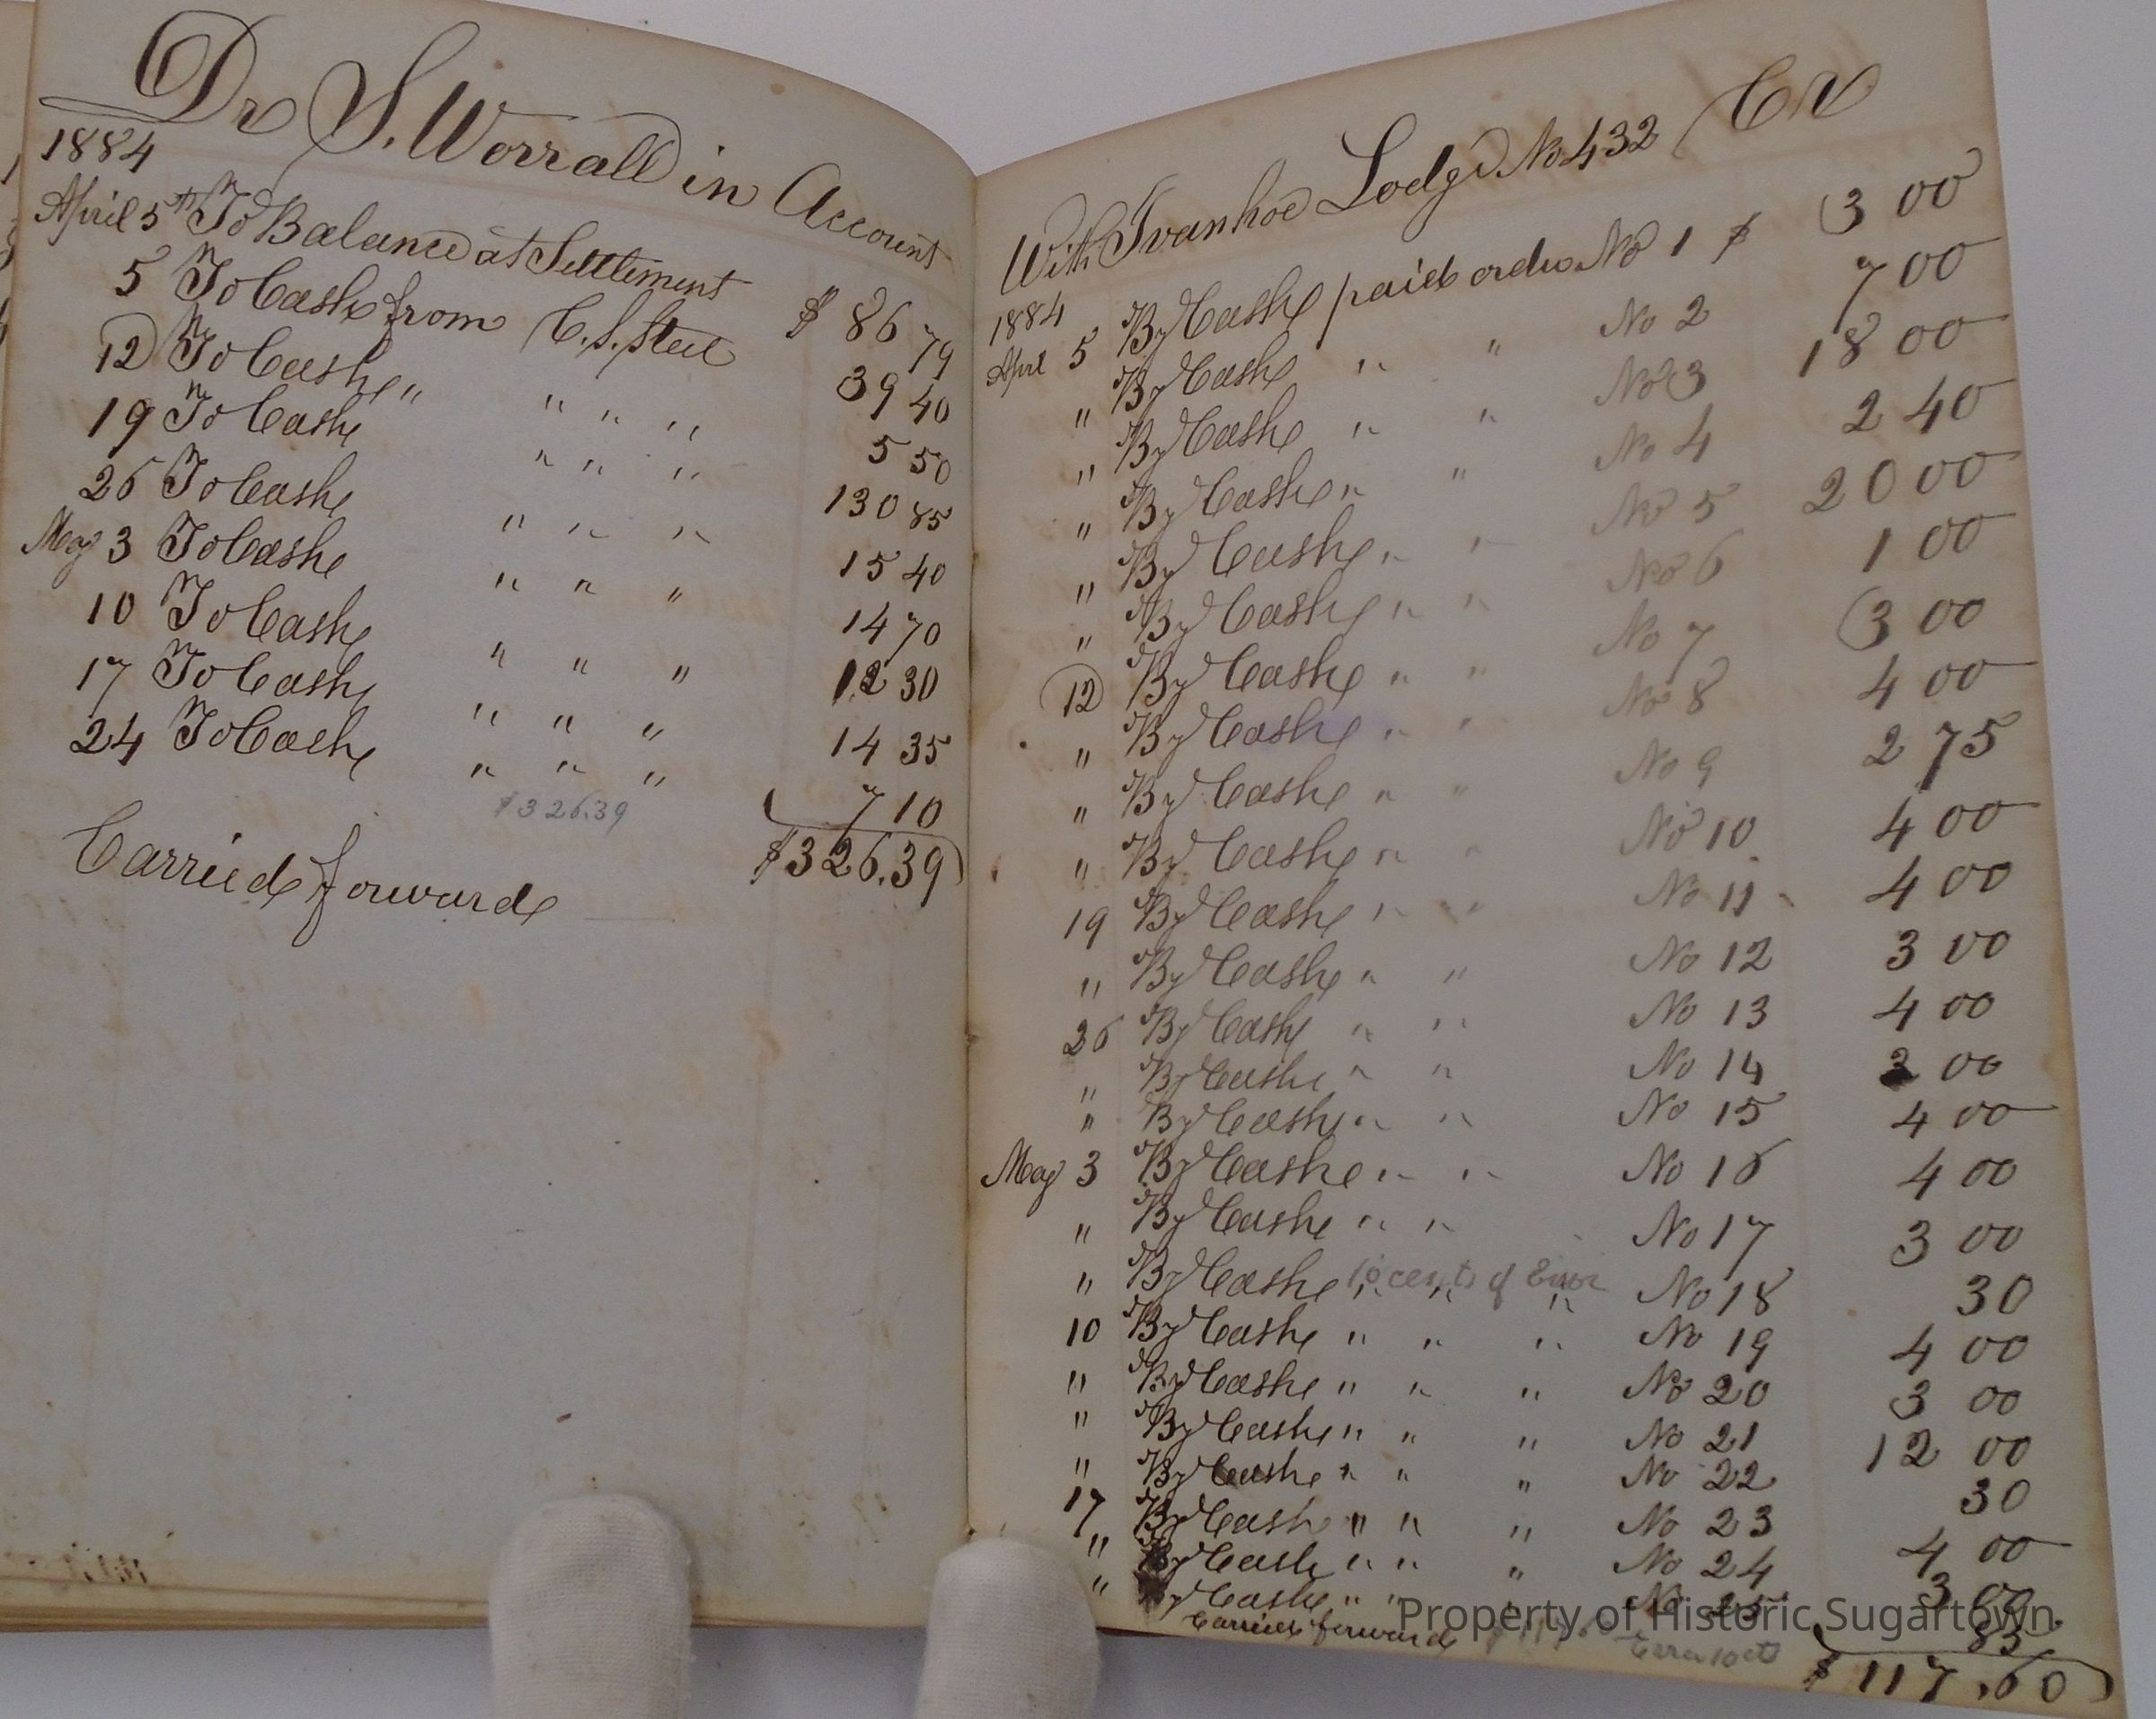 Dr S. Worrall in Account
1884
April 5th To Balance at Settlement $ 86 79
5 To Cash from C. S. Steel 39 40
12 To Cash " " " " 5 50
19 To Cash " " " 130 85
26 To Cash " " " 15 40
May 3 To Cash " " " 14 70
10 To Cash " " " 12 30
17 To Cash " " " 14 35
24 To Cash " " " 7 10
$326.39
Carried forward $326.39
With Ivanhoe Lodge No 432 Cr
1884
April 5 By Cash paid order No 1 $ 3 00
" By Cash " " No 2 7 00
" By Cash " " No 3 18 00
" By Cash " " No 4 2 40
" By Cash " " No 5 20 00
" By Cash " " No 6 1 00
12 By Cash " " No 7 3 00
" By Cash " " No 8 4 00
" By Cash " " No 9 2 75
" By Cash " " No 10 4 00
19 By Cash " " No 11 4 00
" By Cash " " No 12 3 00
26 By Cash " " No 13 4 00
" By Cash " " No 14 3 00
" By Cash " " No 15 4 00
May 3 By Cash " " No 16 4 00
" By Cash " " No 17 3 00
" By Cash " " " No 18 30
10 cents of Error
10 By Cash " " " No 19 4 00
" By Cash " " " No 20 3 00
" By Cash " " " No 21 12 00
" By Cash " " " No 22 30
17 By Cash " " " No 23 4 00
" By Cash " " " No 24 3 00
" By Cash " " " No 25 85
Carried forward Error 10 cts $117.60
Property of Historic Sugartown.